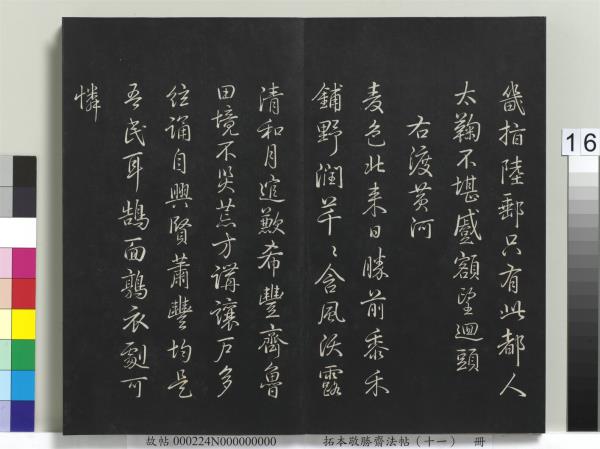 幾指陸郵只有此都人
太鞠不堪蹙額望迴頭
右渡黃河
麦色北来日勝前黍禾
鋪野潤芊〻含風沃露
清和月逭歉希豐齊魯
田境不災荒方講讓戶多
絃誦自興賢蕭豐均是
吾民耳鵠面鶉衣劇可
憐
16
故帖 000224N000000000 拓本敬勝齋法帖（十一） 冊